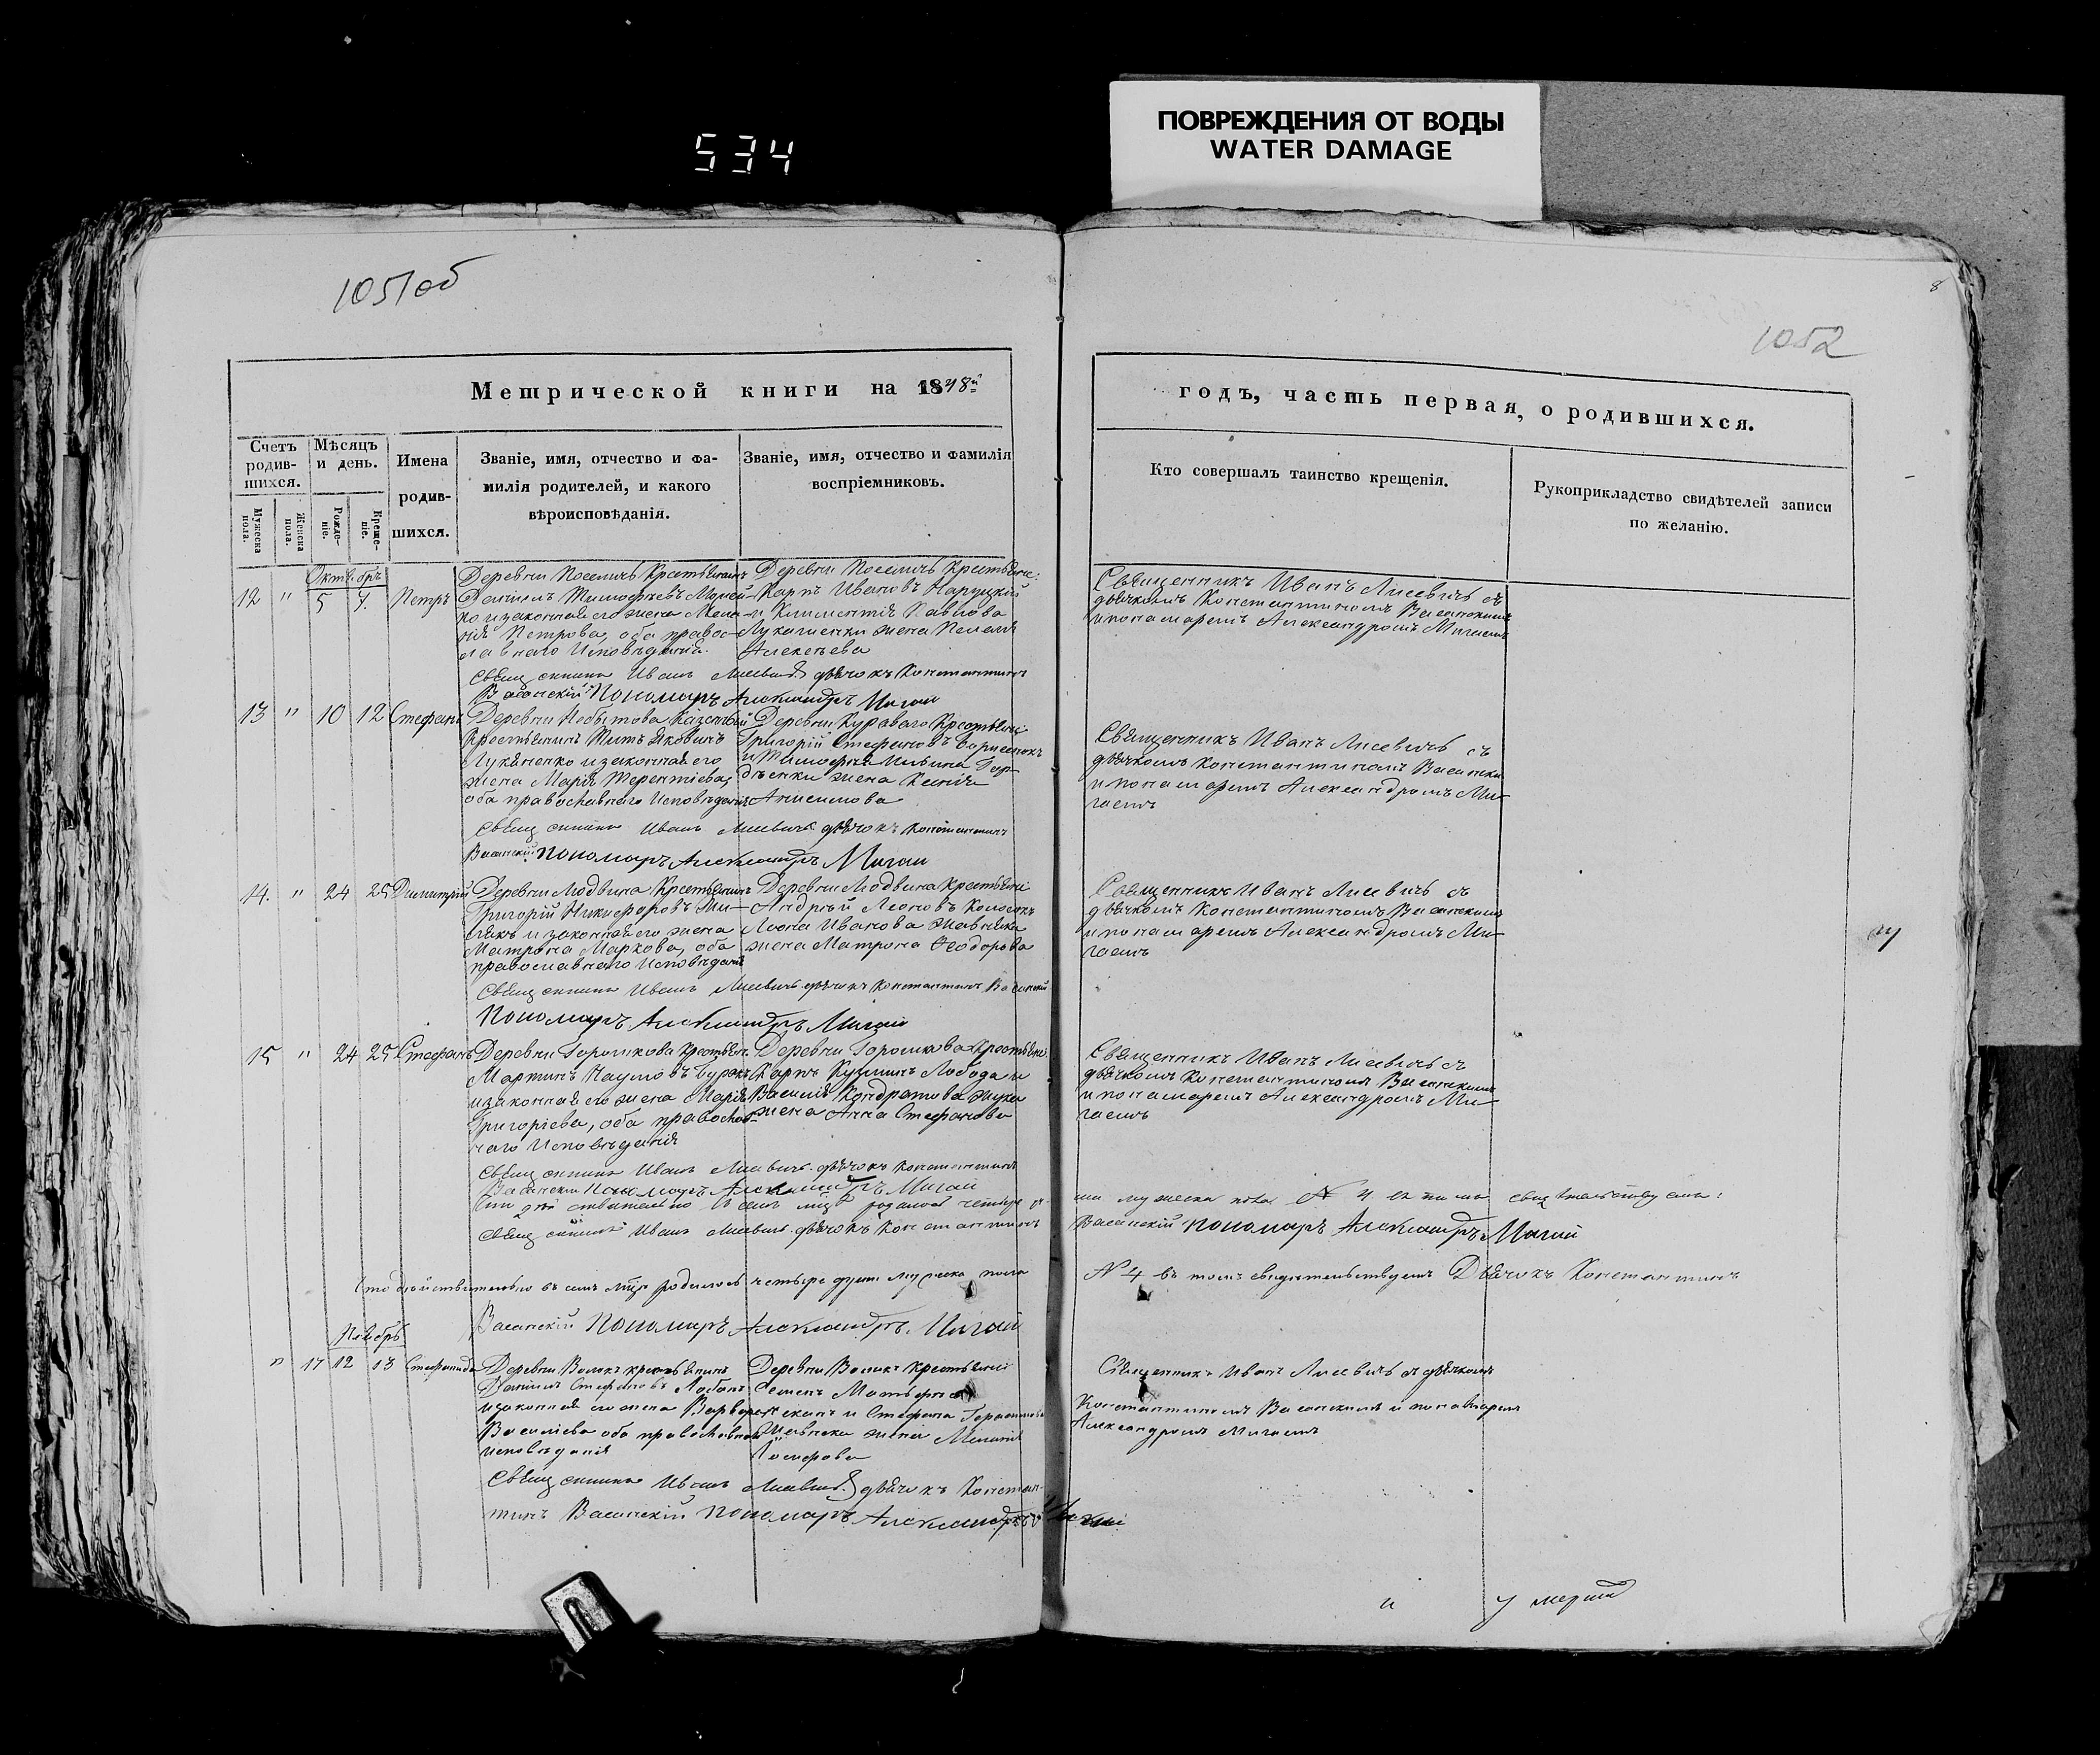 534
ПОВРЕЖДЕНИЯ ОТ ВОДЫ
WATER DAMAGE
1051об
8
1052
Метрической книги на 1848й
годъ, часть первая, о родившихся.
Счетъ родив-шихся.
Мѣсяцъ и день.
Имена родив-шихся.
Званіе, имя, отчество и фа-
милія родителей, и какого
вѣроисповѣданія.
Званіе, имя, отчество и фамилія
воспріемниковъ.
Кто совершалъ таинство крещенія.
Рукоприкладство свидѣтелей записи
по желанію.
Мужеска пола.
Женска пола.
Рожде-ніе.
Креще-ніе.
Октябрь
12 " 5 7. Петръ
Деревни Поселичь Крестьянинъ
Даніилъ Тимофеевъ
и законная его жена Мела-
нія Петрова, оба правос-
лавнаго Исповѣданія.
Деревни Поселичь Крестьяне:
Карпъ Ивановъ Наруцкій
и Климентія Павлова
Лукашенки жена Пелагія
Алексѣева
Священникъ Иванъ Лисевичъ съ
дьячкомъ Константиномъ Васанскимъ
и понамаремъ Александромъ Мигаемъ
Священникъ Иванъ Лисевичъ дьячокъ Константинъ
Васанскій Пономарь Александръ Мигай
13 " 10 12 Стефанъ
Деревни Небытова Казенный
Крестьянинъ Титъ Яковинъ
Лукьяненко и законная его
жена Марія Терентіева,
оба православнаго Исповѣданія
Деревни Куроваго Крестьяне
Григорій Стефановъ Борисенокъ
и Тимофея Ильина Гор-
дѣенки жена Ксенія
Анисимова
Священникъ Иванъ Лисевичъ съ
дьячкомъ Константиномъ Васанским
и понамаремъ Александромъ Ми-
гаемъ
Священникъ Иванъ Лисевичъ дьячокъ Константинъ
Васанскій Пономарь Александръ Мигай
14. " 24 25 Димитрій
Деревни Модвина Крестьянинъ
Григорій Никифоровъ
и законная его жена
Матрона Маркова, оба
православнаго Исповѣданія
Деревни Модвина Крестьяне
Андрей Леоновъ Колосокъ
Леона Иванова
жена Матрона Ѳеодорова
Священникъ Иванъ Лисевичъ съ
дьячкомъ Константиномъ Васанскимъ
и понамаремъ Александромъ Ми-
гаемъ
Священникъ Иванъ Лисевичъ дьячокъ Константинъ Васанскій
Пономарь Александръ Мигай
15 " 24 25 Стефанъ
Деревни Горошкова Крестьян.
Мартинъ Наумовъ Буракъ
и законная его жена Марія
Григоріева, оба православ-
наго Исповѣданія
Деревни Горошкова Крестьяне
Карпъ Кузминъ Лобода и
Василія Кондратова Жука
жена Анна Стефанова
Священникъ Иванъ Лисевичъ съ
дьячкомъ Константиномъ Васанскимъ
и понамаремъ Александромъ Ми-
гаемъ
Священникъ Иванъ Лисевичъ дьячокъ Константинъ
Васанскій Пономарь Александръ Мигай
Что дѣйствительно въ семъ мцѣ родилось четыре
мужеска пола N 4 свидѣтельствуемъ:
Священникъ Иванъ Лисевичъ дьячокъ Константинъ
Васанскій пономарь Александръ Мигай
Что дѣйствительно въ семъ мцѣ родилось четыре души мужеска пола
N 4 въ томъ свидѣтельствуемъ Дьячокъ Константинъ
Васанскій Пономарь Александръ Мигай
Ноябрь
" 17 12 13 Стефанида
Деревни Волокъ крестьянинъ
Даніилъ Стефановъ Лобанъ
и законная его жена Варвара
Василіева оба православнаго
исповѣданія
Деревни Волокъ крестьяне
Семенъ
и Стефана Герасимова
жена Меланія
Іосифова
Священникъ Иванъ Лисевичъ съ дьячкомъ
Константиномъ Васанскимъ и понамаремъ
Александромъ Мигаемъ
Священникъ Иванъ Лисевичъ дьячокъ Констан-
тинъ Васанскій пономарь Александръ Мигай
и